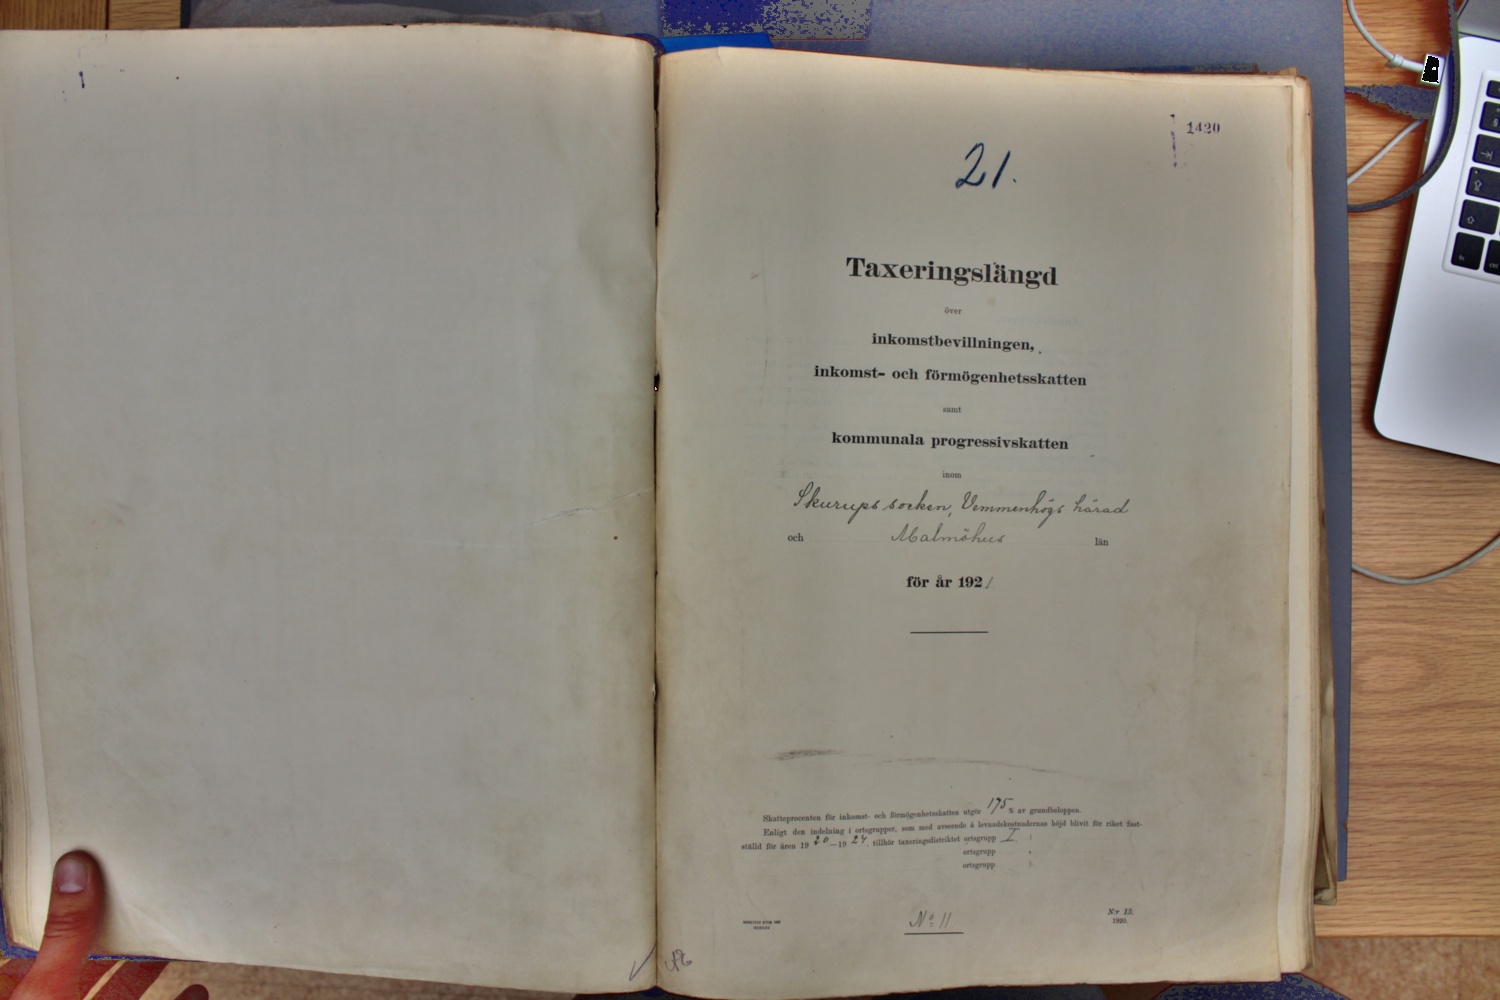 1420
21.
Taxeringslängd
över
inkomstbevillningen,
inkomst- och förmögenhetsskatten
samt
kommunala progressivskatten
inom
Skurups socken, Vemmenhögs härad
och Malmöhus län
för år 1921
Skatteprocenten för inkomst- och förmögenhetsskatten utgör 175 % av grundbeloppen.
Enligt den indelning i ortsgrupper, som med avseende å levnadskostnadernas höjd blivit för riket fast-
ställd för åren 1920—1924, tillhör taxeringsdistriktet ortsgrupp I
ortsgrupp
ortsgrupp
No 11
N:r 13.
1920.